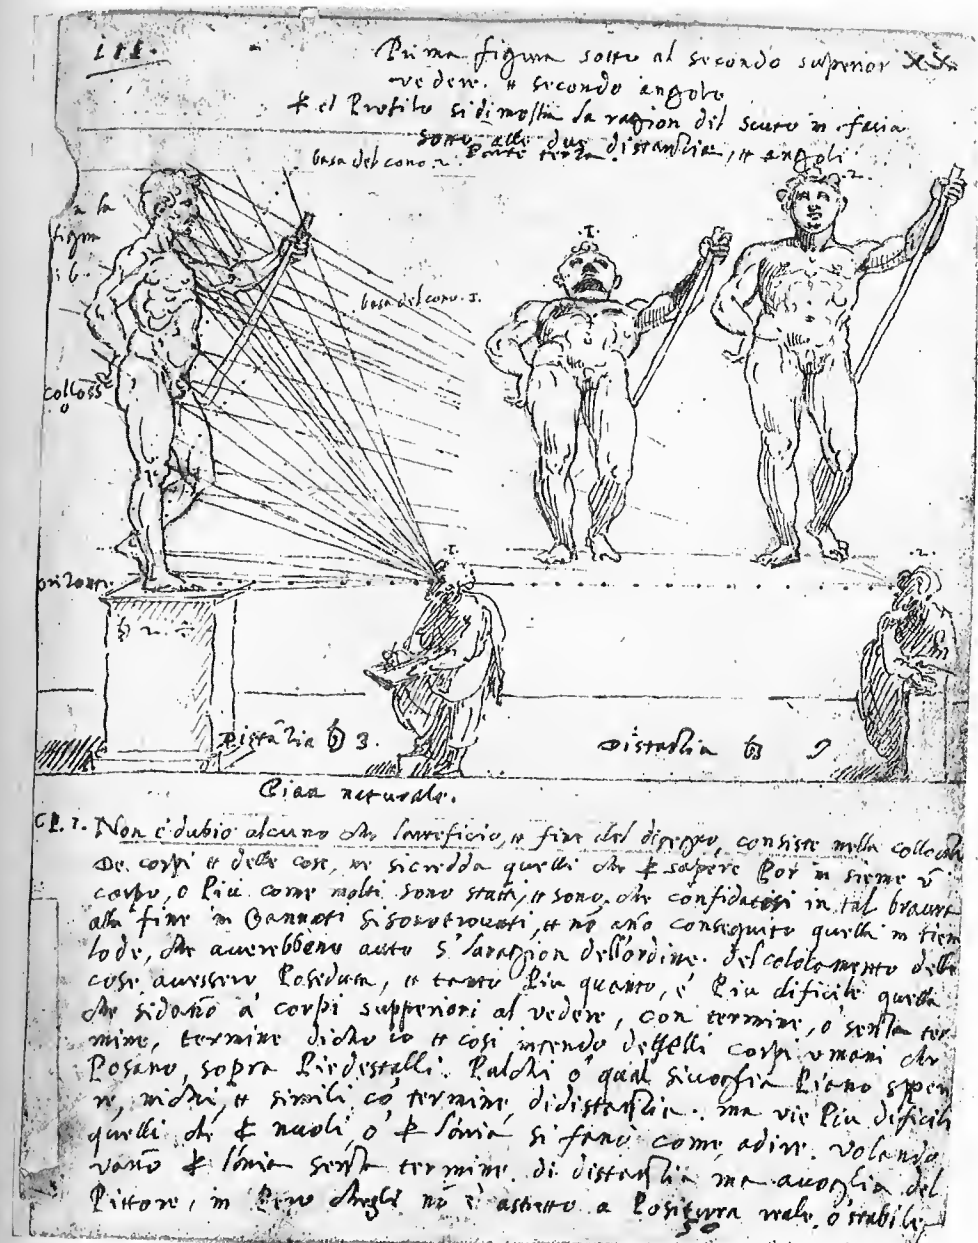 111.
Prima figura sotto al secondo superior
vedere. et secondo angolo
el Profilo si dimostra la ragion del scurto in facia
sotto alle due distantia, et angoli
basa del cono. 2. Parte terza.
a la
figura
basa del cono. 1.
1.
2.
colloss
o
1.
2.
orizonte.
Distātia 3.
Distantia
Pian naturale.
Non è dubio alcuno che l'arteficio, et fine del disegno, consiste nella
De corpi et delle cose, ne si credda quelli che sapere Por in sieme ū
corpo, o Più come molti sono stati, et sono, che confidatosi in tal bravura
alla fine in Gannati si sono trovati, et nō āno consequito quella
lode, che averebbeno auto s' la ragion dell'ordine. del colocamento delle
cose avessero Poseduta, et tanto Piu quanto, è Piu dificile quella
che si dāno a corpi supperiori al vedere, con termine, o senza ter
mine, termine dicho io et cosi intendo corpi umani che
Posano, sopra Piedestalli. Palchi o qual si voglia Piano
re, nichi, et simili cō termine, di distantia. ma vie Piu dificili
quelli che nuoli, o l'āria si fano come, a dire. volando
vano l'āria senza termine. di distantia ma a voglia del
Pittore, in Pero chegli nō è astretto a Positura reale, o stabile